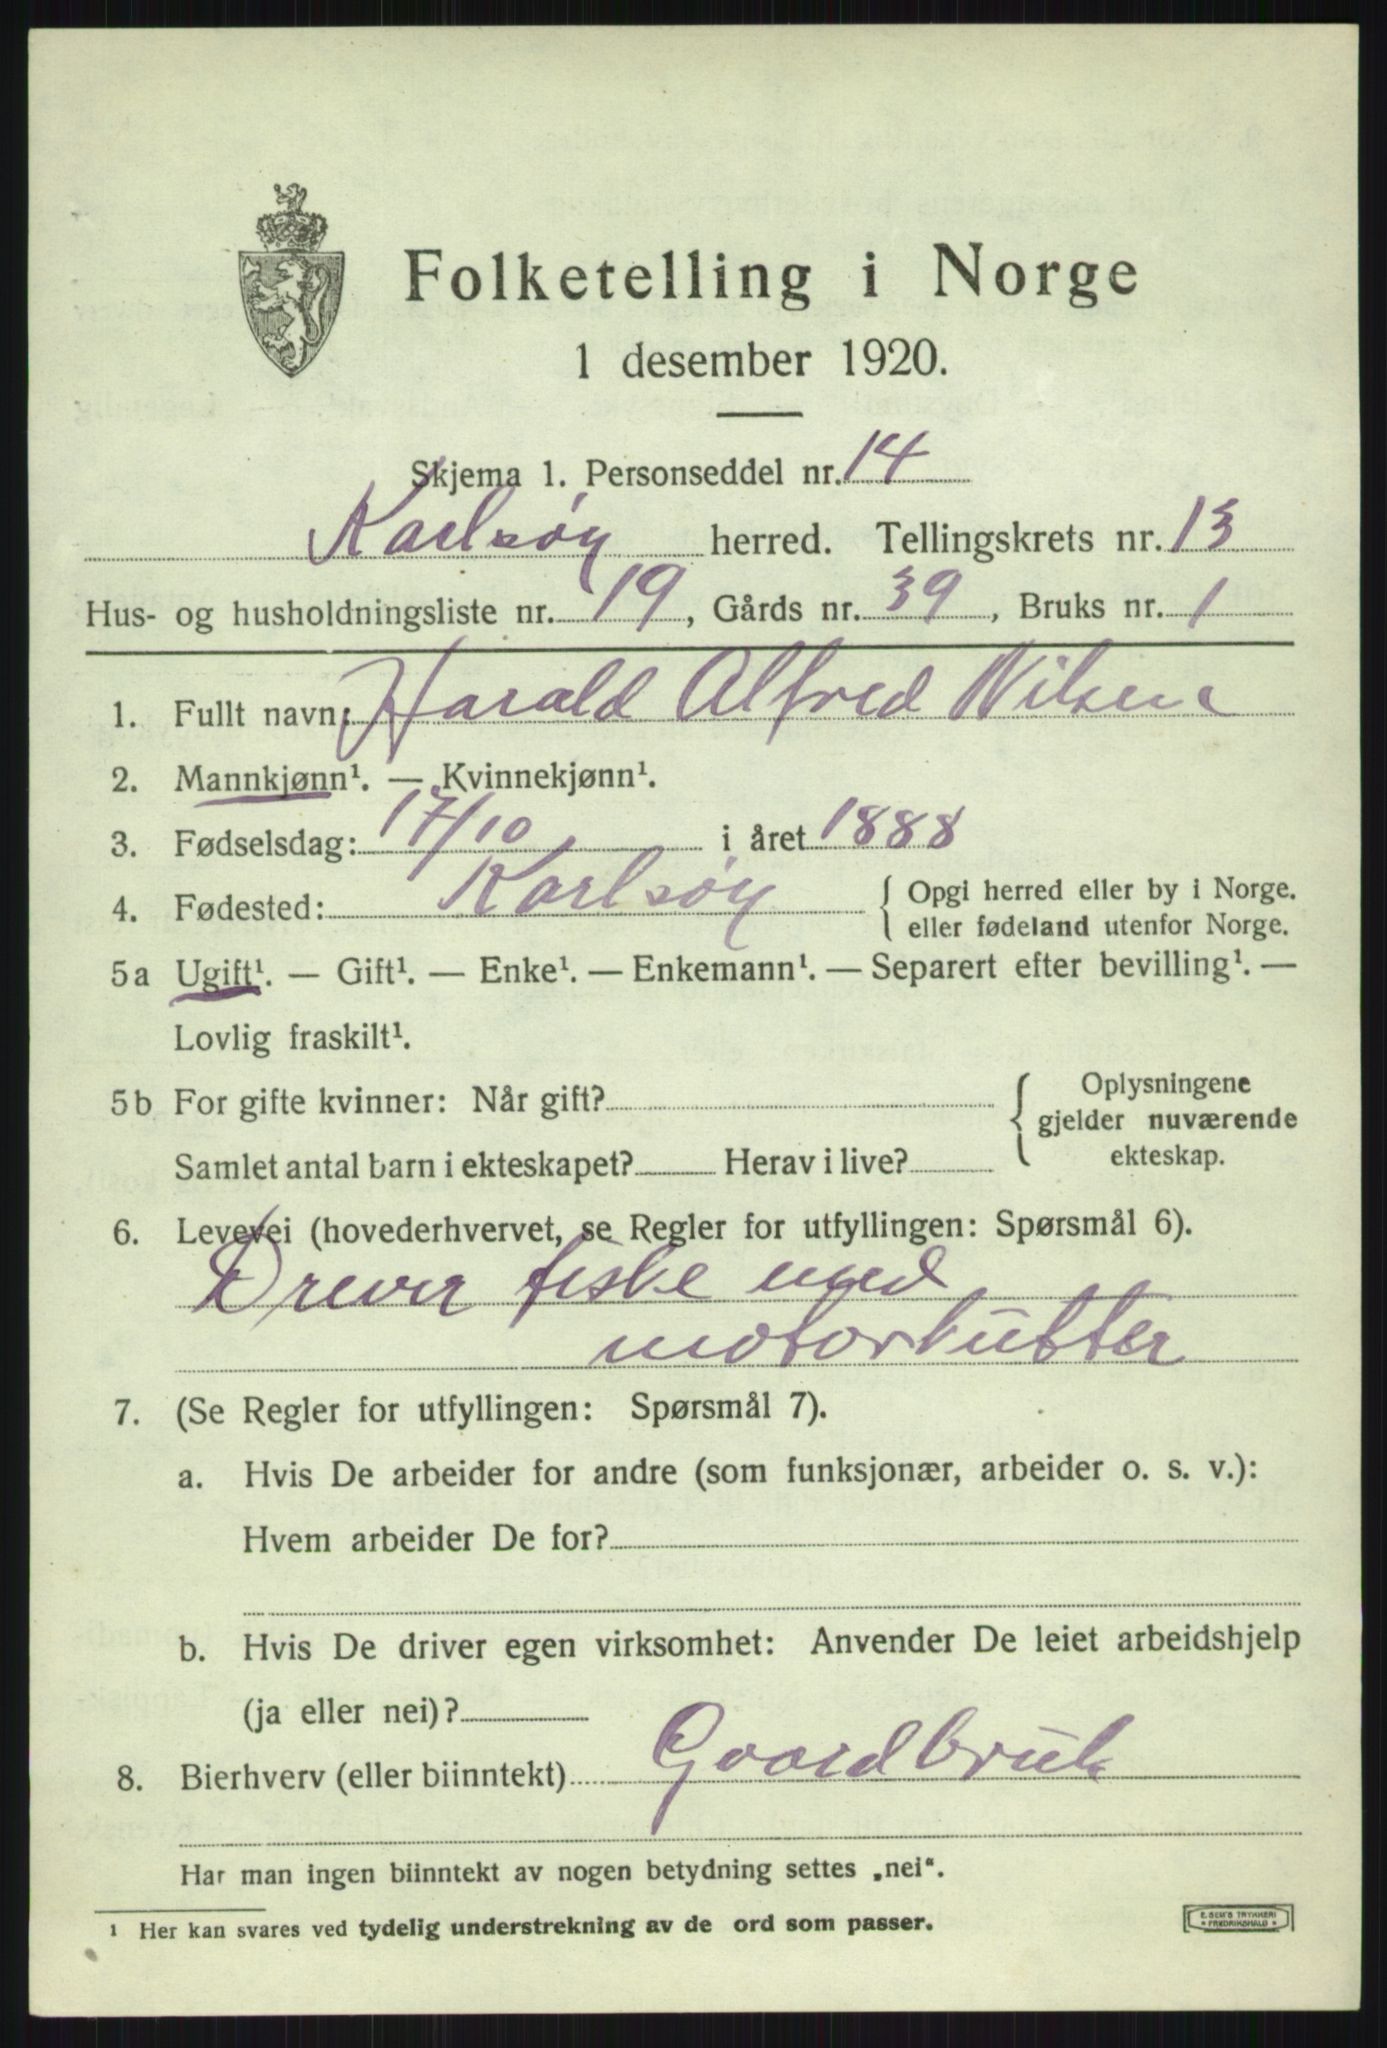 Folketelling i Norge
1 desember 1920.
Skjema 1. Personseddel nr. 14
Karlsøy herred. Tellingskrets nr. 13
Hus- og husholdningsliste nr. 19, Gårds nr. 39, Bruks nr. 1
1. Fullt navn: Harald Alfred Nilsen
2. Mannkjønn¹. — Kvinnekjønn¹.
3. Fødselsdag: 17/10 i året 1888
4. Fødested: Karlsøy { Opgi herred eller by i Norge.
eller fødeland utenfor Norge.
5a Ugift¹. — Gift¹. — Enke¹. — Enkemann¹. — Separert efter bevilling¹. —
Lovlig fraskilt¹.
5b For gifte kvinner: Når gift?
Samlet antal barn i ekteskapet? Herav i live?
{ Oplysningene
gjelder nuværende
ekteskap.
6. Levevei (hovederhvervet, se Regler for utfyllingen: Spørsmål 6).
Drever fiske med
motorkutter
7. (Se Regler for utfyllingen: Spørsmål 7).
a. Hvis De arbeider for andre (som funksjonær, arbeider o. s. v.):
Hvem arbeider De for?
b. Hvis De driver egen virksomhet: Anvender De leiet arbeidshjelp
(ja eller nei)?
8. Bierhverv (eller biinntekt) Gaardbruk
Har man ingen biinntekt av nogen betydning settes „nei“.
¹ Her kan svares ved tydelig understrekning av de ord som passer.
E. SEM'S TRYKKERI
* FREDRIKSHALD *